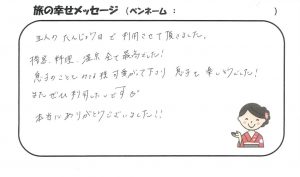 旅の幸せメッセージ（ペンネーム：　　　）
主人の たんじょう日で利用させて頂きました。
情景、料理、温泉 全て最高でした！
息子のことも 可愛がって下さり 息子も 楽しそうでした！
またぜひ利用したいですが
本当にありがとうございました!!